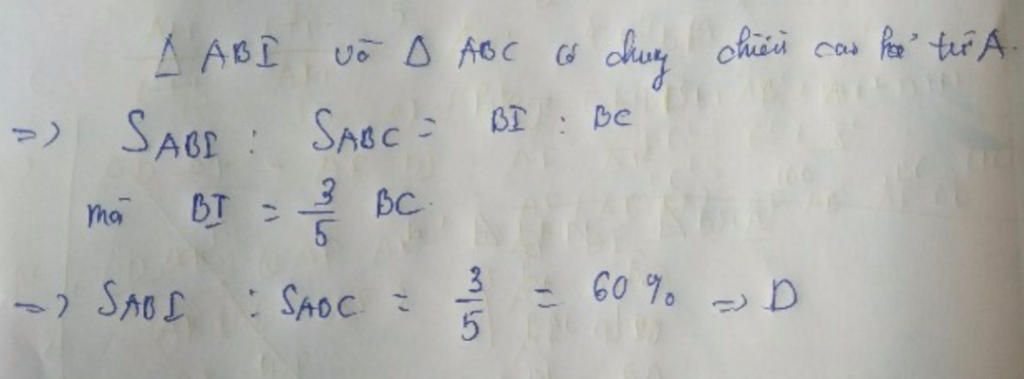 Δ ABI và Δ ABC có chung chiều cao kẻ từ A.
=> SABI : SABC = BI : BC
mà BI = 3/5 BC.
=> SABI : SABC = 3/5 = 60% => D